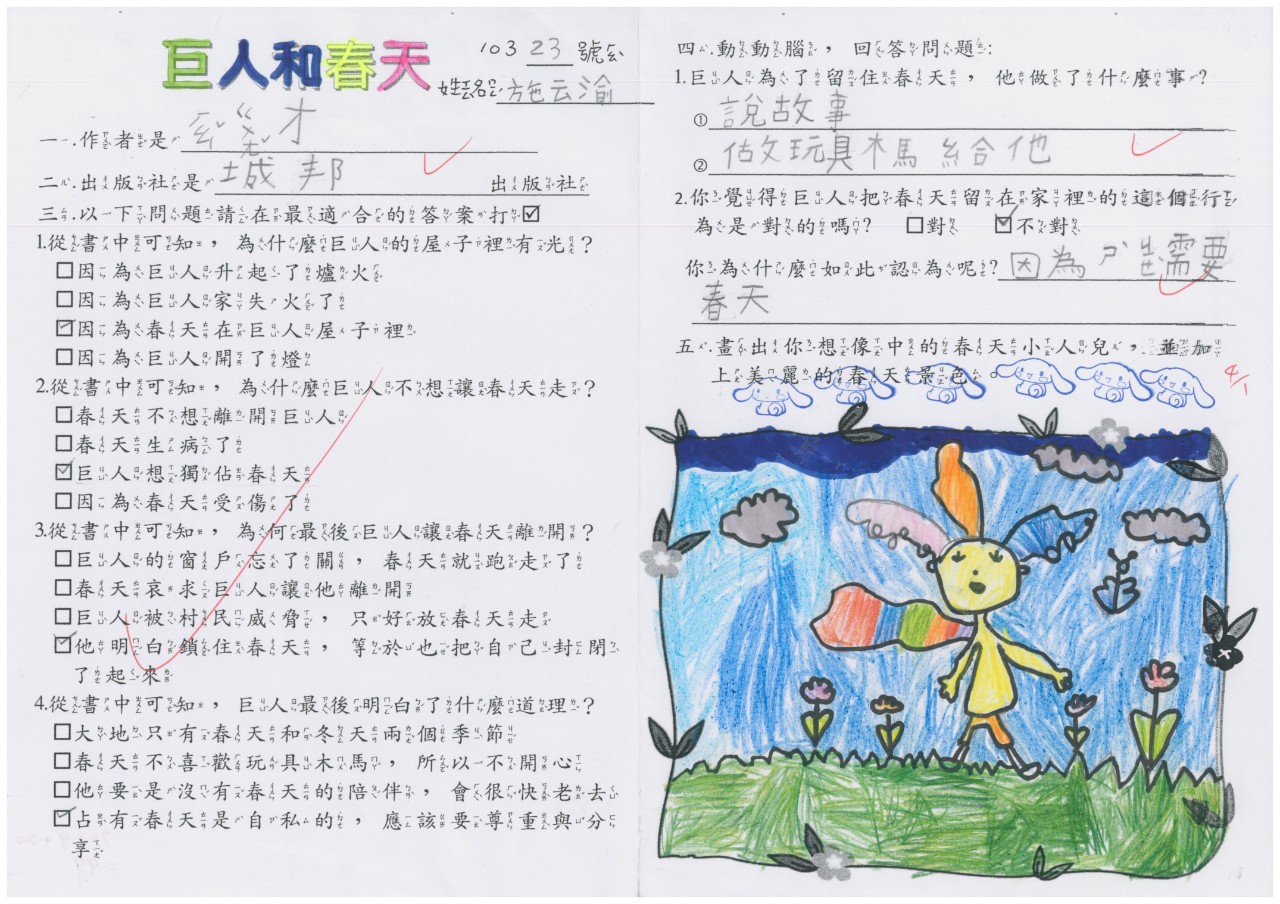 巨人和春天
103 23 號
姓名 施云渝
一.作者是 ㄍㄨㄛ ㄍㄨㄟ 才
二.出版社是 城邦 出版社
三.以下問題請在最適合的答案打☑
1.從書中可知，為什麼巨人的屋子裡有光？
□因為巨人升起了爐火
□因為巨人家失火了
☑因為春天在巨人屋子裡
□因為巨人開了燈
2.從書中可知，為什麼巨人不想讓春天走？
□春天不想離開巨人
□春天生病了
☑巨人想獨佔春天
□因為春天受傷了
3.從書中可知，為何最後巨人讓春天離開？
□巨人的窗戶忘了關，春天就跑走了
□春天哀求巨人讓他離開
□巨人被村民威脅，只好放春天走
☑他明白鎖住春天，等於也把自己封閉
了起來
4.從書中可知，巨人最後明白了什麼道理？
□大地只有春天和冬天兩個季節
□春天不喜歡玩具木馬，所以不開心
□他要是沒有春天的陪伴，會很快老去
☑占有春天是自私的，應該要尊重與分
享
四.動動腦，回答問題:
1.巨人為了留住春天，他做了什麼事？
① 說故事
② 做玩具木馬給他
2.你覺得巨人把春天留在家裡的這個行
為是對的嗎？ □對 ☑不對
你為什麼如此認為呢？因為ㄕˋ ㄐㄧㄝ需要
春天
五.畫出你想像中的春天小人兒，並加
上美麗的春天景色。
4/1